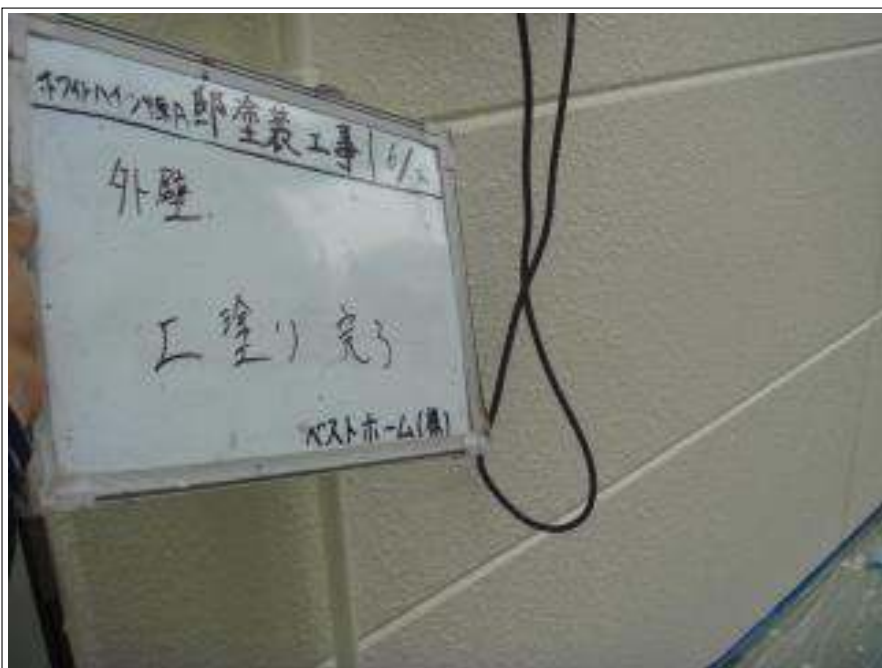 邸塗装工事 6/
外壁
工塗り完了
ベストホーム(株)